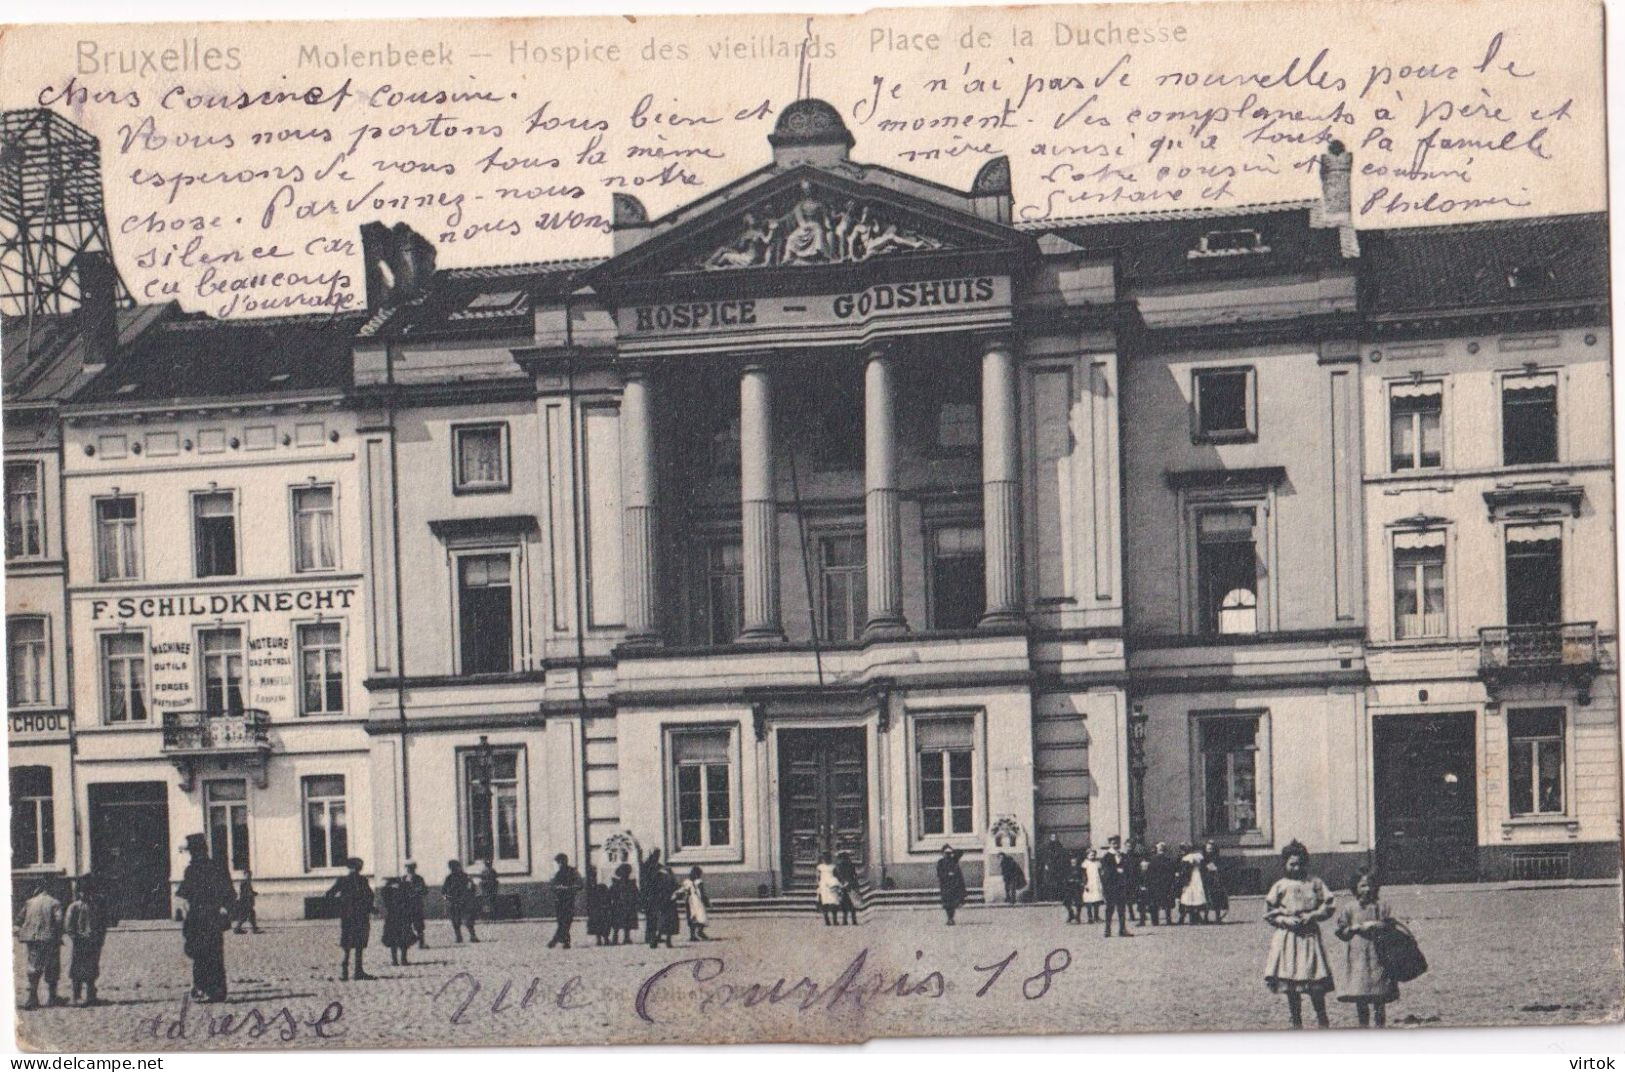 Bruxelles Molenbeek — Hospice des vieillards Place de la Duchesse
chers cousin et cousine.
Nous nous portons tous bien et
esperons de vous tous la même
chose. Pardonnez-nous notre
silence car nous avons
eu beaucoup
d'ouvrage.
Je n'ai pas de nouvelles pour le
moment. des complements à Père et
mère ainsi qu'à toute la famille
Votre cousin et cousine
Gustave et Philomène
HOSPICE — GODSHUIS
F. SCHILDKNECHT
MACHINES
OUTILS
FORGES
MOTEURS
A
GAZ PETROLE
SCHOOL
adresse rue Courtois 18
virtok